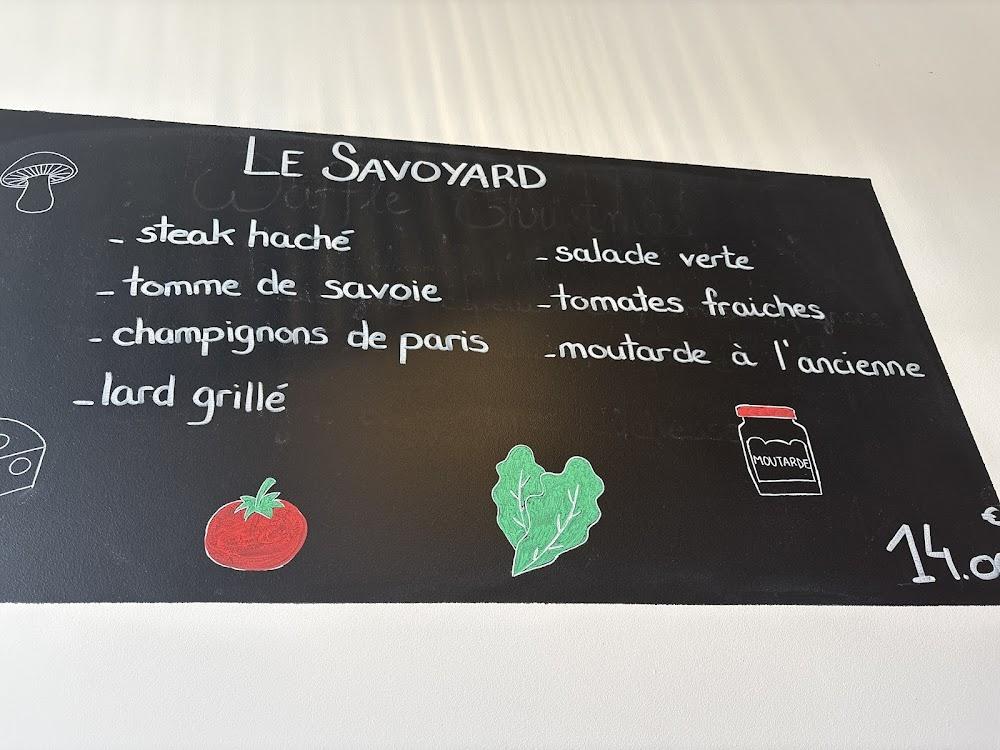 LE SAVOYARD
Waffle Christmas
- steak haché
- tomme de savoie
- champignons de paris
- lard grillé
- salade verte
- tomates fraiches
- moutarde à l'ancienne
MOUTARDE
€
14.0